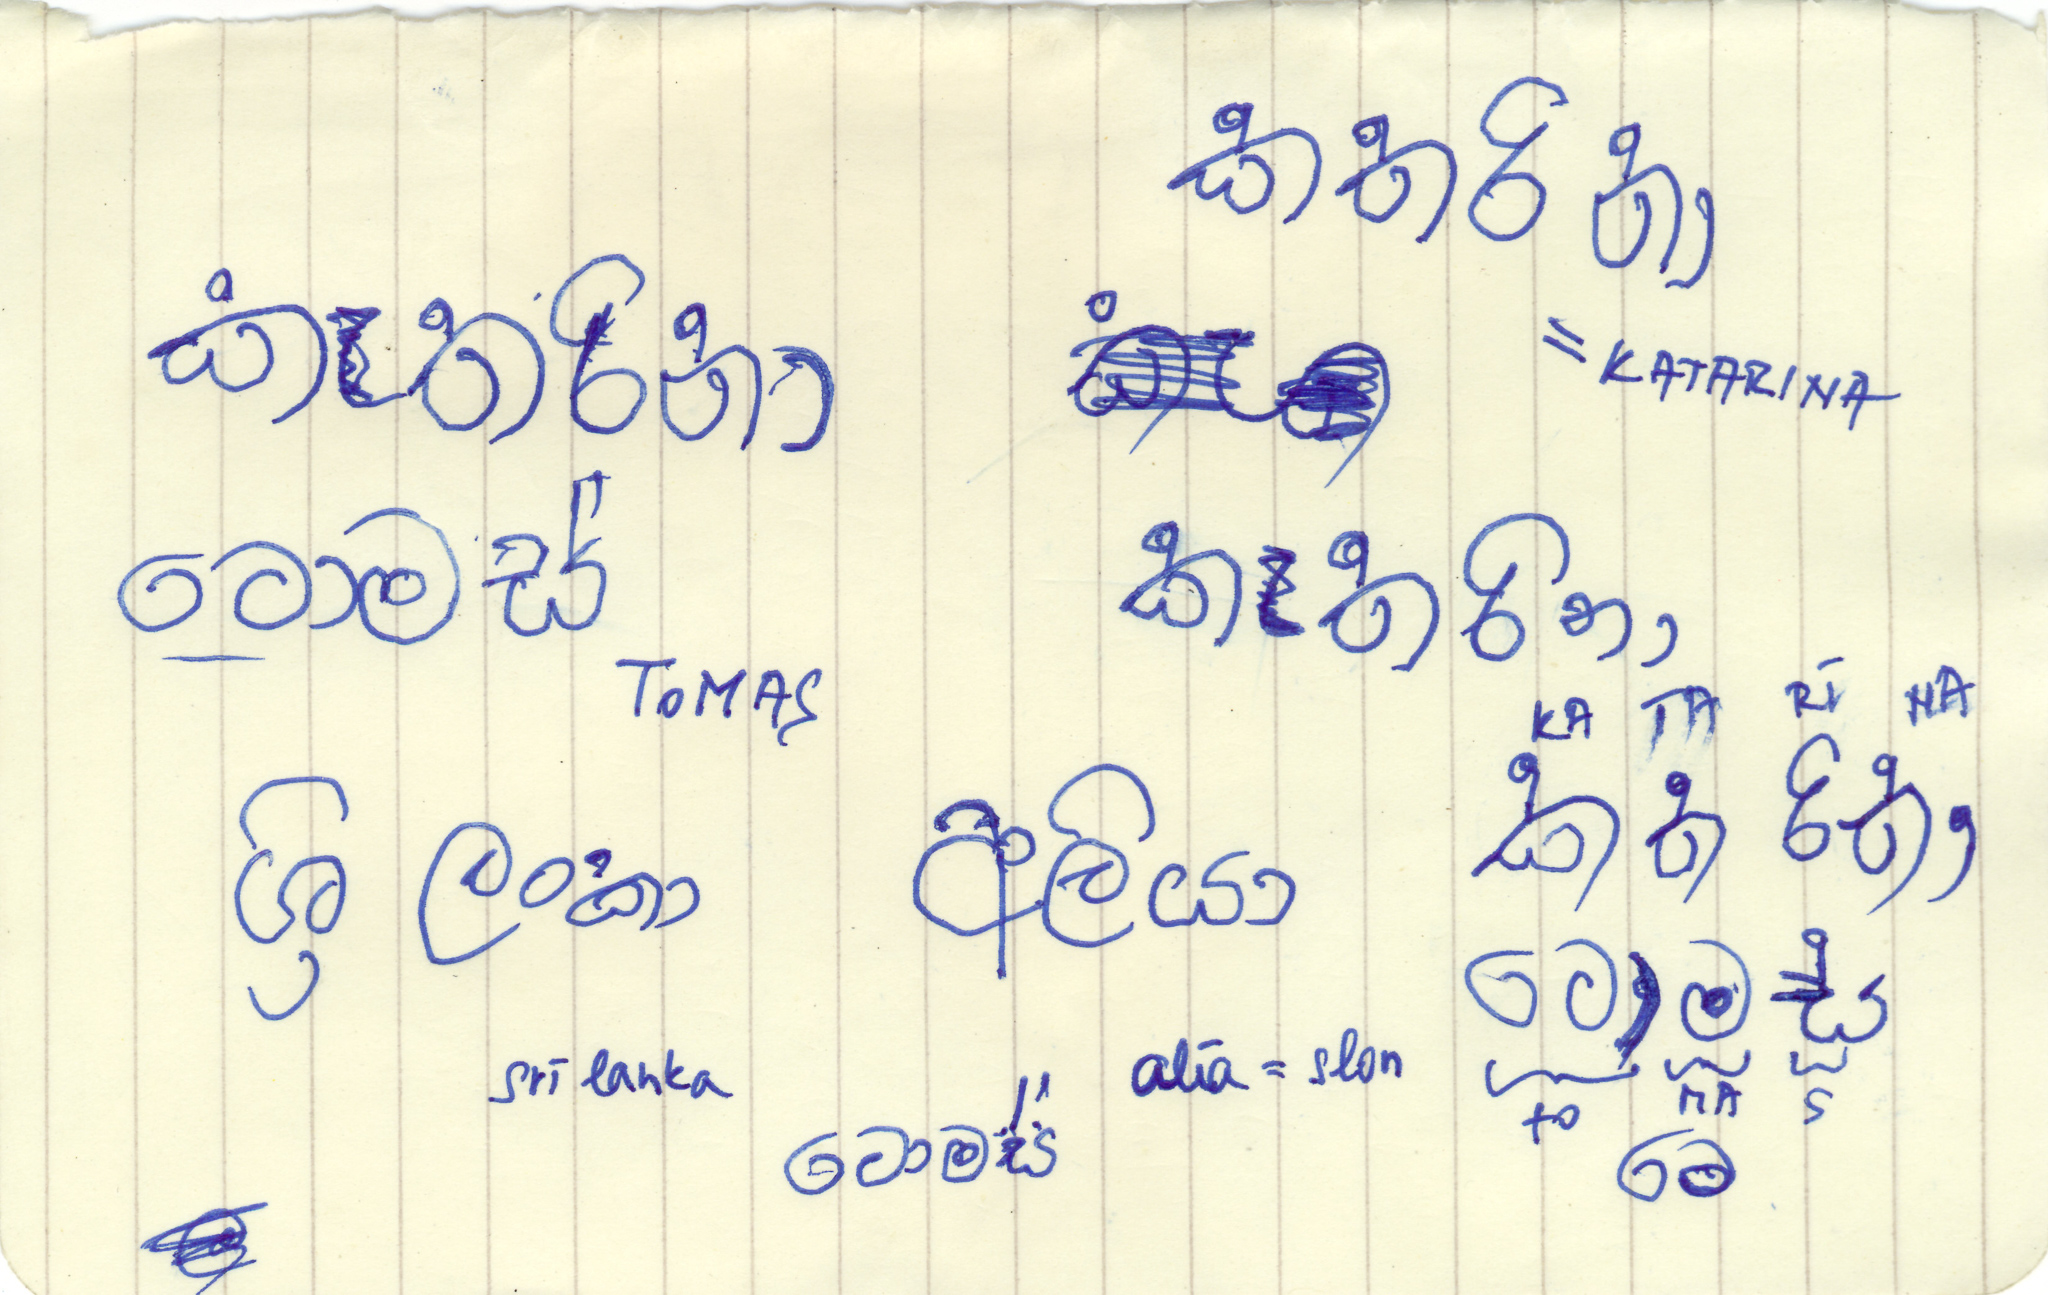 කතරිනා
= KATARINA
කැතරිනා
ටොමස්
TOMAS
කැතරිනා
KA TA RI NA
කතරිනා
ශ්‍රි ලංකා
අලියා
ටොමස්
to MA S
sri lanka
alia = slon
ටොමස්
මෙ